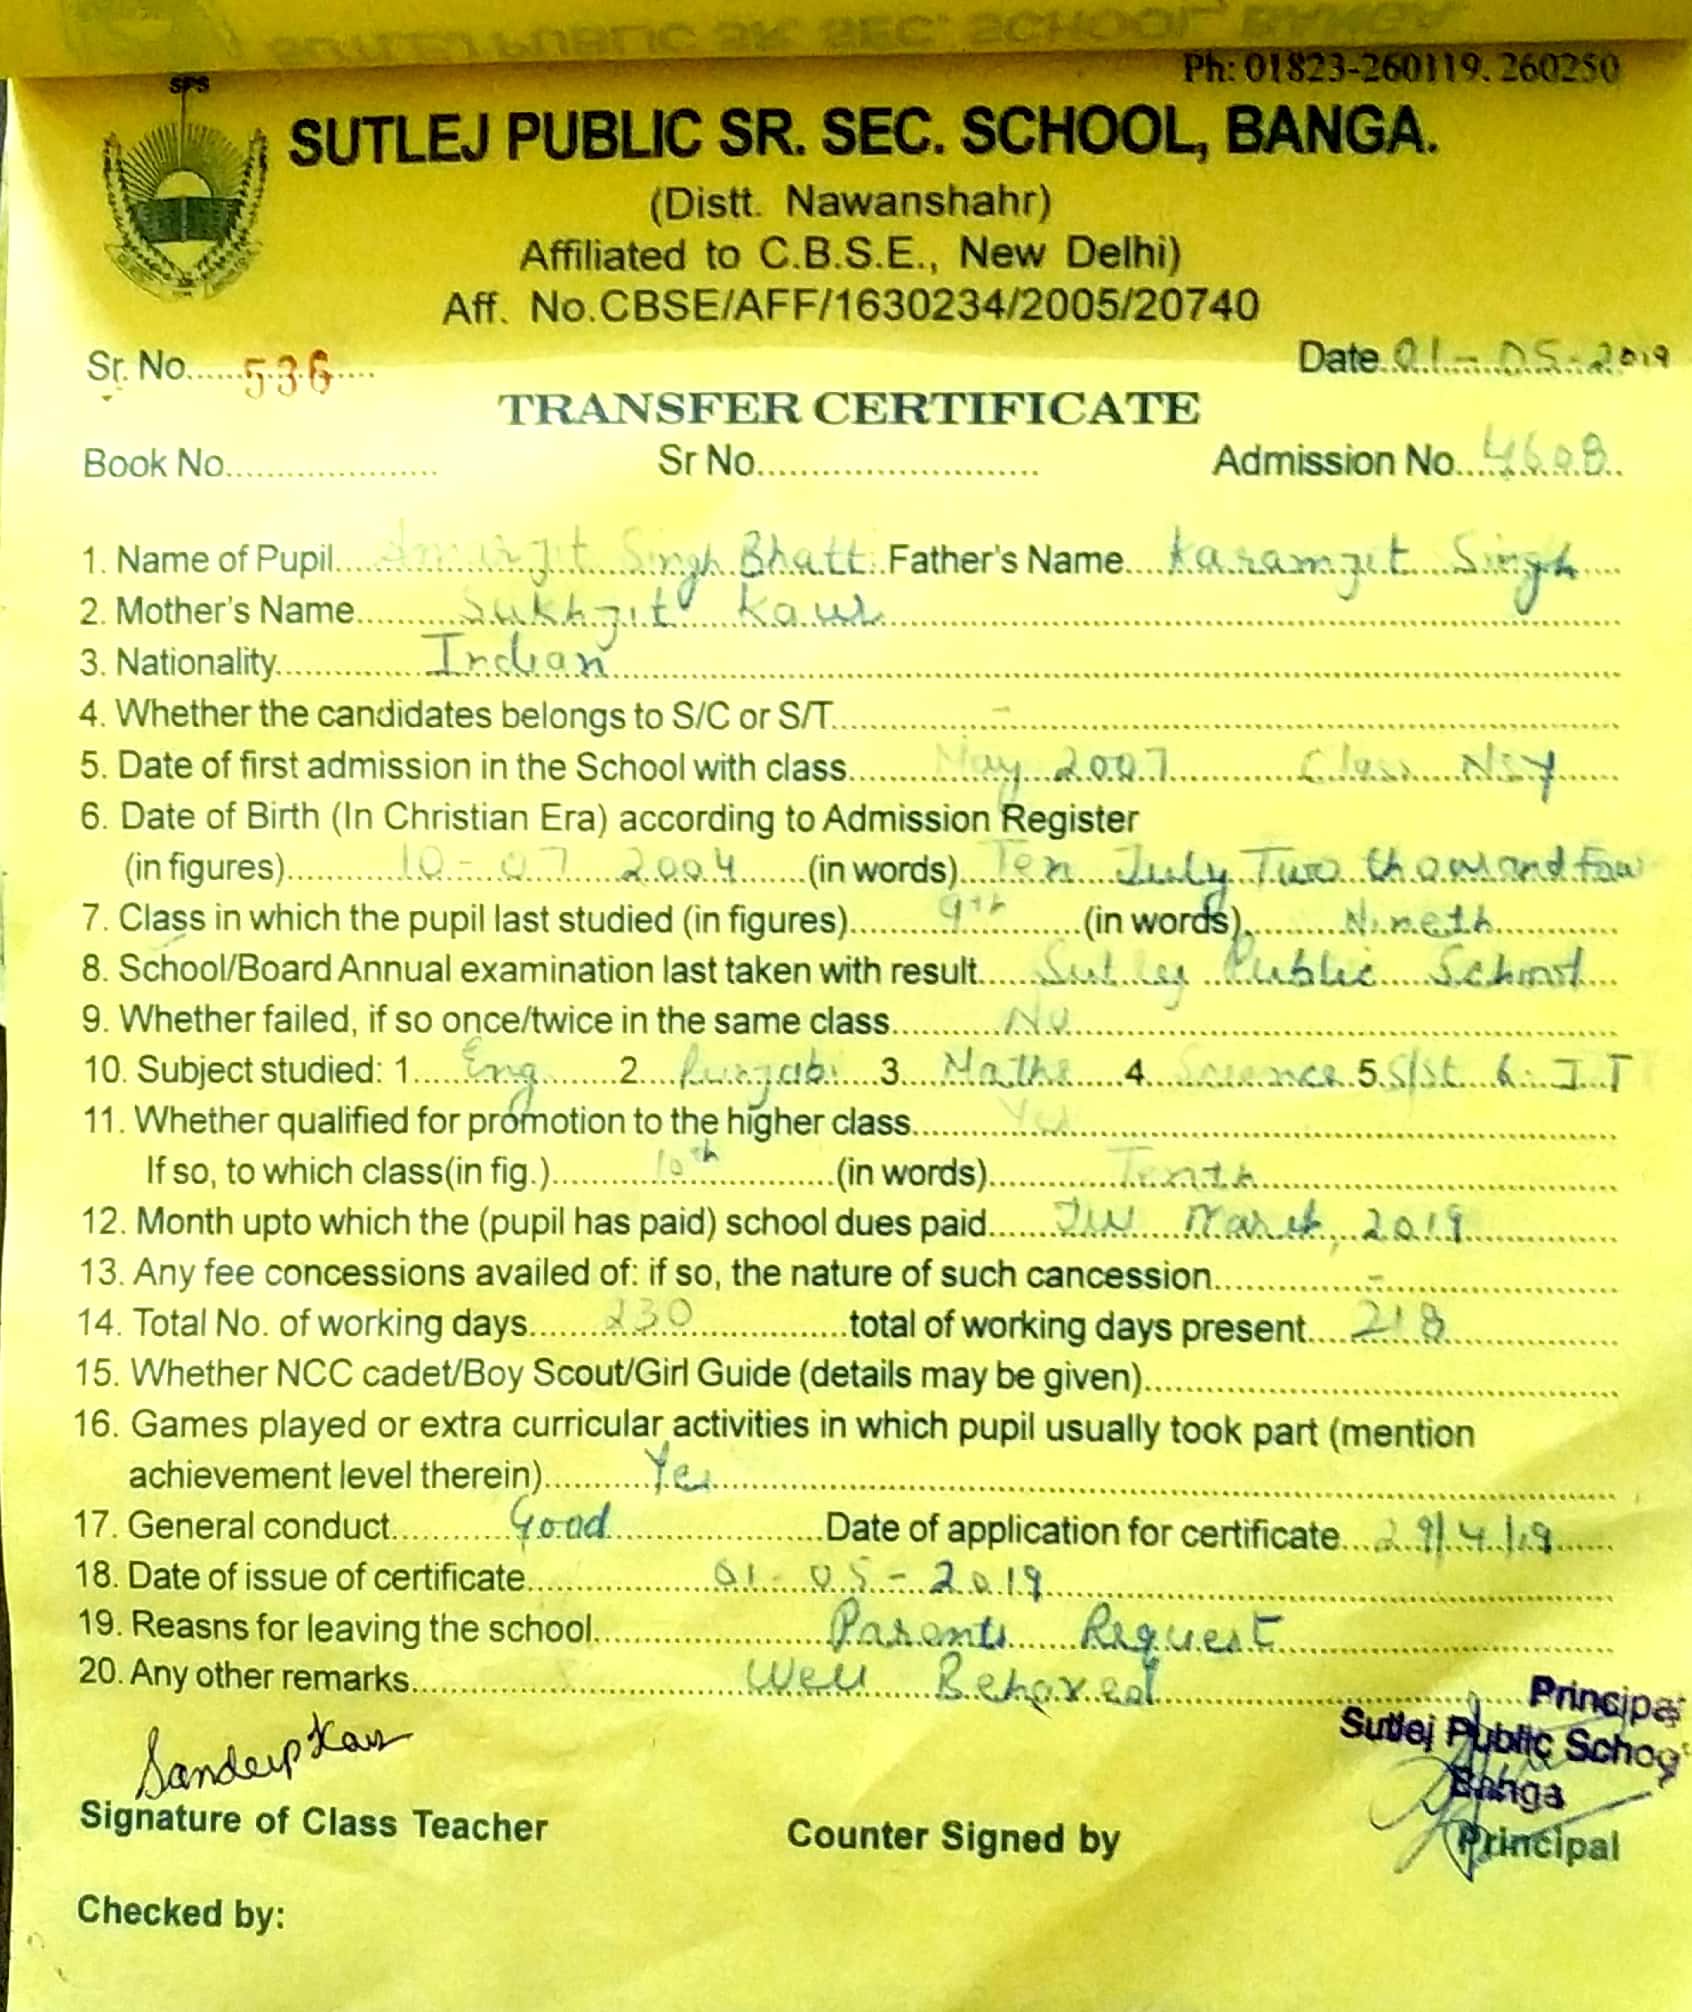 Ph: 01823-260119, 260250
SPS
SUTLEJ PUBLIC SR. SEC. SCHOOL, BANGA.
(Distt. Nawanshahr)
Affiliated to C.B.S.E., New Delhi)
Aff. No.CBSE/AFF/1630234/2005/20740
Sr. No......536.... Date..01-05-2019
TRANSFER CERTIFICATE
Book No.................... Sr No.......................... Admission No....4608..
1. Name of Pupil....Amarjit Singh Bhatt..Father's Name....Karamjit Singh....
2. Mother's Name..........Sukhjit Kaur..........
3. Nationality..............Indian..........
4. Whether the candidates belongs to S/C or S/T..............-..........
5. Date of first admission in the School with class........May 2007..........Class Nsy......
6. Date of Birth (In Christian Era) according to Admission Register
(in figures)..........10-07 2004......(in words)...Ten July Two thousand Four
7. Class in which the pupil last studied (in figures)........9th......(in words)........Nineth..........
8. School/Board Annual examination last taken with result.....Sutlej Public School...
9. Whether failed, if so once/twice in the same class..........No..........
10. Subject studied: 1.....Eng.......2...Punjabi....3...Maths.....4....Science.5.S/St 6. I.T
11. Whether qualified for promotion to the higher class.........Yes..........
If so, to which class(in fig.)..........10th..........(in words)..........Tenth..........
12. Month upto which the (pupil has paid) school dues paid......Till March, 2019..........
13. Any fee concessions availed of: if so, the nature of such cancession..............-..........
14. Total No. of working days.......230..............total of working days present....218..........
15. Whether NCC cadet/Boy Scout/Girl Guide (details may be given)..........
16. Games played or extra curricular activities in which pupil usually took part (mention
achievement level therein)..........Yes..........
17. General conduct..........Good..........Date of application for certificate...29/4/19......
18. Date of issue of certificate..........01-05-2019..........
19. Reasns for leaving the school..........Parents Request..........
20. Any other remarks..........Well Behaved..........
Principal
Sutlej Public School
Banga
Sandeep Kaur
Signature of Class Teacher Counter Signed by Principal
Checked by: